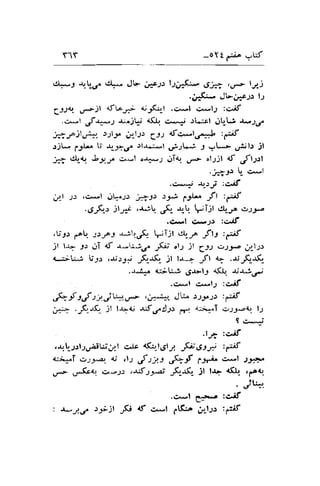 کتاب هفتم ٥٢٤_ ٣٦٣
زیرا حس، چیزی سنگین‌را درعین حال سبک می‌یابد وسبک
را درعین‌حال سنگین.
گفت: راست است. اینگونه خبرها که ازحس به‌روح
می‌رسد شایان اعتماد نیست بلکه نیازمند رسیدگی است.
گفتم: طبیعی‌است‌که روح دراین موارد بیش‌ازهرچیز
از دانش حساب و شمارش استمداد می‌جوید تا معلوم سازد
ادراکی که ازراه حس به‌آن رسیده است مربوط به‌یک چیز
است یا دوچیز.
گفت: تردید نیست.
گفتم: اگر معلوم شود دوچیز درمیان است، در این
صورت هریک ازآنها یکی باید باشد، غیراز دیگری.
گفت: درست است.
گفتم: واگر هریک ازآنها یکی‌باشد وهردو باهم دوتا،
دراین صورت روح از راه تفکر می‌شناسد که آن دو جدا از
یکدیگرند. چه اگر جدا از یکدیگر نبودند، دوتا شناخته
نمی‌شدند بلکه واحدی شناخته میشد.
گفت: راست است.
گفتم: درمورد مثال پیشین، حس‌بینائی‌بزرگی‌وکوچکی
را به‌صورت آمیخته بهم درک‌می‌کند نه‌جدا از یکدیگر. چنین
نیست؟
گفت: چرا.
گفتم: نیروی‌تفکر برای‌اینکه علت این‌تناقض‌رادریابد،
مجبور است مفهوم کوچکی وبزرگی را، نه بصورت آمیخته
به‌هم، بلکه جدا از یکدیگر تصورکند، درست به‌عکس حس
بینائی.
گفت: صحیح است.
گفتم: دراین هنگام است که فکر ازخود می‌پرسد: